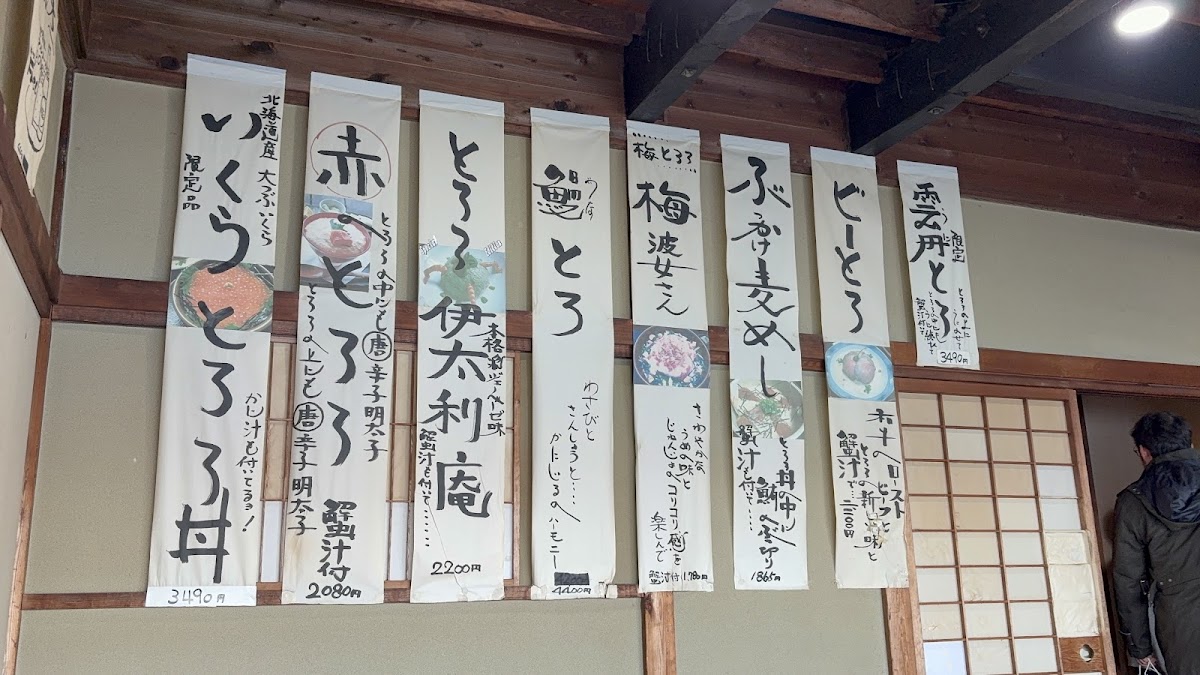 北海道産 大ぶいくら
いくらとろろ丼
限定品
かに汁も付いてるョ!
3490円
赤のとろろ
とろろの中にも唐辛子明太子
とろろの上にも唐辛子明太子
蟹汁付
2080円
とろろ伊太利庵
蟹汁も付いて……
2200円
鰻とろ
うなぎ
わさびと
さんしょうと…
かにじるの
ハーモニー
4400円
梅とろろ
梅波女さん
さわやかな
うめの味と
じゃんじゃの
コリコリ感を
楽しんで
蟹汁付1780円
ぶっかけ麦めし
とろろ丼の中に
鮪の
蟹汁も付いて……
1865円
ビーとろ
和牛のロースト
ビーフと
とろろの新しい味と
蟹汁で…
雲丹とろ
うに
限定
とろろの上に
うにのせて
とろろの中にも
蟹汁付
3490円